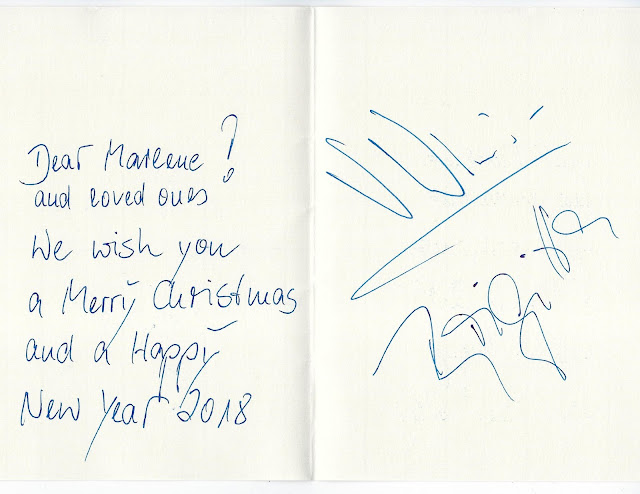 Dear Marlene !
and loved ones
We wish you
a Merry Christmas
and a Happy
New Year 2018